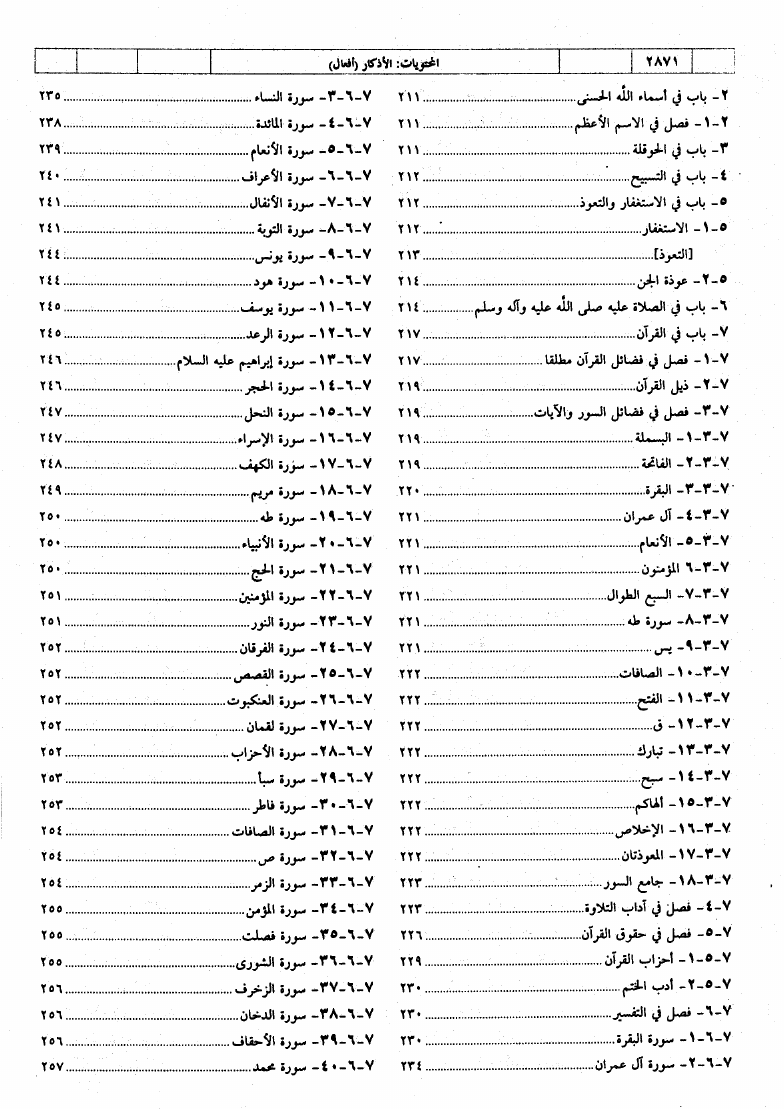 ٢٨٧١
المحتويات: الأذكار (أفعال)
٢- باب في أسماء الله الحسنى ٢١١
٢-١- فصل في الاسم الأعظم ٢١١
٣- باب في الحوقلة ٢١١
٤- باب في التسبيح ٢١٢
٥- باب في الاستغفار والتعوذ ٢١٢
٥-١- الاستغفار ٢١٢
[التعوذ] ٢١٣
٥-٢- عوذة الجن ٢١٤
٦- باب في الصلاة عليه صلى الله عليه وآله وسلم ٢١٤
٧- باب في القرآن ٢١٧
٧-١- فصل في فضائل القرآن مطلقا ٢١٧
٧-٢- ذيل القرآن ٢١٩
٧-٣- فصل في فضائل السور والآيات ٢١٩
٧-٣-١- البسملة ٢١٩
٧-٣-٢- الفاتحة ٢١٩
٧-٣-٣- البقرة ٢٢٠
٧-٣-٤- آل عمران ٢٢١
٧-٣-٥- الأنعام ٢٢١
٧-٣-٦ المؤمنون ٢٢١
٧-٣-٧- السبع الطوال ٢٢١
٧-٣-٨- سورة طه ٢٢١
٧-٣-٩- يس ٢٢١
٧-٣-١٠- الصافات ٢٢٢
٧-٣-١١- الفتح ٢٢٢
٧-٣-١٢- ق ٢٢٢
٧-٣-١٣- تبارك ٢٢٢
٧-٣-١٤- سبح ٢٢٢
٧-٣-١٥- ألهاكم ٢٢٢
٧-٣-١٦- الإخلاص ٢٢٢
٧-٣-١٧- المعوذتان ٢٢٢
٧-٣-١٨- جامع السور ٢٢٣
٧-٤- فصل في آداب التلاوة ٢٢٣
٧-٥- فصل في حقوق القرآن ٢٢٦
٧-٥-١- أحزاب القرآن ٢٢٩
٧-٥-٢- أدب الختم ٢٣٠
٧-٦- فصل في التفسير ٢٣٠
٧-٦-١- سورة البقرة ٢٣٠
٧-٦-٢- سورة آل عمران ٢٣٤
٧-٦-٣- سورة النساء ٢٣٥
٧-٦-٤- سورة المائدة ٢٣٨
٧-٦-٥- سورة الأنعام ٢٣٩
٧-٦-٦- سورة الأعراف ٢٤٠
٧-٦-٧- سورة الأنفال ٢٤١
٧-٦-٨- سورة التوبة ٢٤١
٧-٦-٩- سورة يونس ٢٤٤
٧-٦-١٠- سورة هود ٢٤٤
٧-٦-١١- سورة يوسف ٢٤٥
٧-٦-١٢- سورة الرعد ٢٤٥
٧-٦-١٣- سورة إبراهيم عليه السلام ٢٤٦
٧-٦-١٤- سورة الحجر ٢٤٦
٧-٦-١٥- سورة النحل ٢٤٧
٧-٦-١٦- سورة الإسراء ٢٤٧
٧-٦-١٧- سورة الكهف ٢٤٨
٧-٦-١٨- سورة مريم ٢٤٩
٧-٦-١٩- سورة طه ٢٥٠
٧-٦-٢٠- سورة الأنبياء ٢٥٠
٧-٦-٢١- سورة الحج ٢٥٠
٧-٦-٢٢- سورة المؤمنين ٢٥١
٧-٦-٢٣- سورة النور ٢٥١
٧-٦-٢٤- سورة الفرقان ٢٥٢
٧-٦-٢٥- سورة القصص ٢٥٢
٧-٦-٢٦- سورة العنكبوت ٢٥٢
٧-٦-٢٧- سورة لقمان ٢٥٢
٧-٦-٢٨- سورة الأحزاب ٢٥٢
٧-٦-٢٩- سورة سبأ ٢٥٣
٧-٦-٣٠- سورة فاطر ٢٥٣
٧-٦-٣١- سورة الصافات ٢٥٤
٧-٦-٣٢- سورة ص ٢٥٤
٧-٦-٣٣- سورة الزمر ٢٥٤
٧-٦-٣٤- سورة المؤمن ٢٥٥
٧-٦-٣٥- سورة فصلت ٢٥٥
٧-٦-٣٦- سورة الشورى ٢٥٥
٧-٦-٣٧- سورة الزخرف ٢٥٦
٧-٦-٣٨- سورة الدخان ٢٥٦
٧-٦-٣٩- سورة الأحقاف ٢٥٦
٧-٦-٤٠- سورة محمد ٢٥٧